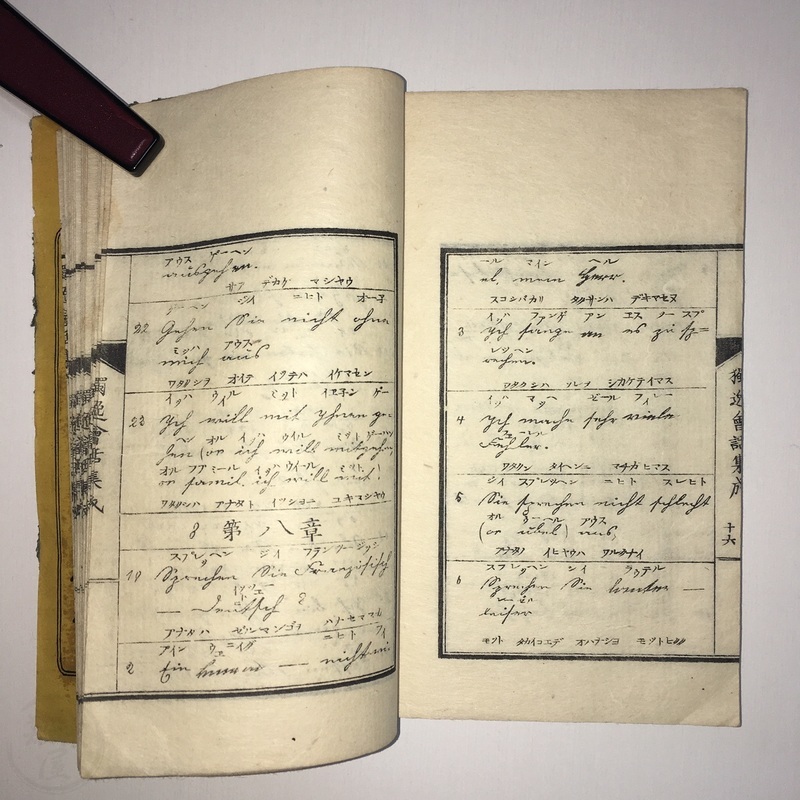 アウス ゲーヘン
ausgehen.
デカケ マシヤウ
ゲーヘン ジイ ニヒト オー子
22 Gehen Sie nicht ohne
ミツヒ アウス
mich aus
ワタシヲ オイテ イツテハ イケマセン
イツヒ ウイル ミツト イ子ン ゲー
23 Ych will mit Yhnen ge=
ヘン オル イツヒ ウイル ミツト
hen (or ich will mitgehen
オル ファミール イツヒ ウイール ミツト
or famil. ich will mit!
ワタクシハ アナタト イツシヨニ ユキマシヤウ
8 第八章
スプレツヘン ジイ フランツージツシ
Sprechen Sie Französisch
— Deutsch ?
アナタハ ゼルマンゴヲ ハナセマスカ
アイン ウエーニイグ ニヒト フイ
2 Ein wenig — nicht vi
獨逸會話集成
ール マイン ヘル
el, mein Herr.
スコシバカリ タクサンハ デキマセヌ
イツヒ フアンゲ アン エス ツー スプ
3 Ych fange an es zu sp=
レツヘン
rechen.
ワタクシハ ソレヲ シカケテイマス
イツヒ マツヘ ゼール フイレー
4 Ych mache sehr viele
フエーレル
Fehler.
ワタクシ タイヘンニ マチガヒマス
ジイ スプレツヘン ニヒト スレヒト
5 Sie sprechen nicht schlecht
オル ウーベル アウス
(or übel) aus,
アナタノ イヒヤウハ ワルクナイ
スプレツヘン ジイ ラウテル
6 Sprechen Sie lauter —
leiser
モツト タカイコエデ オハナシヨ モツトヒクク
獨逸會話集成
十六